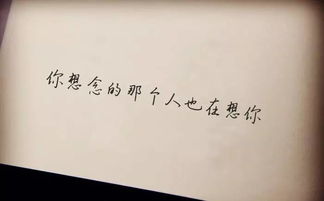 你想念的那个人也在想你